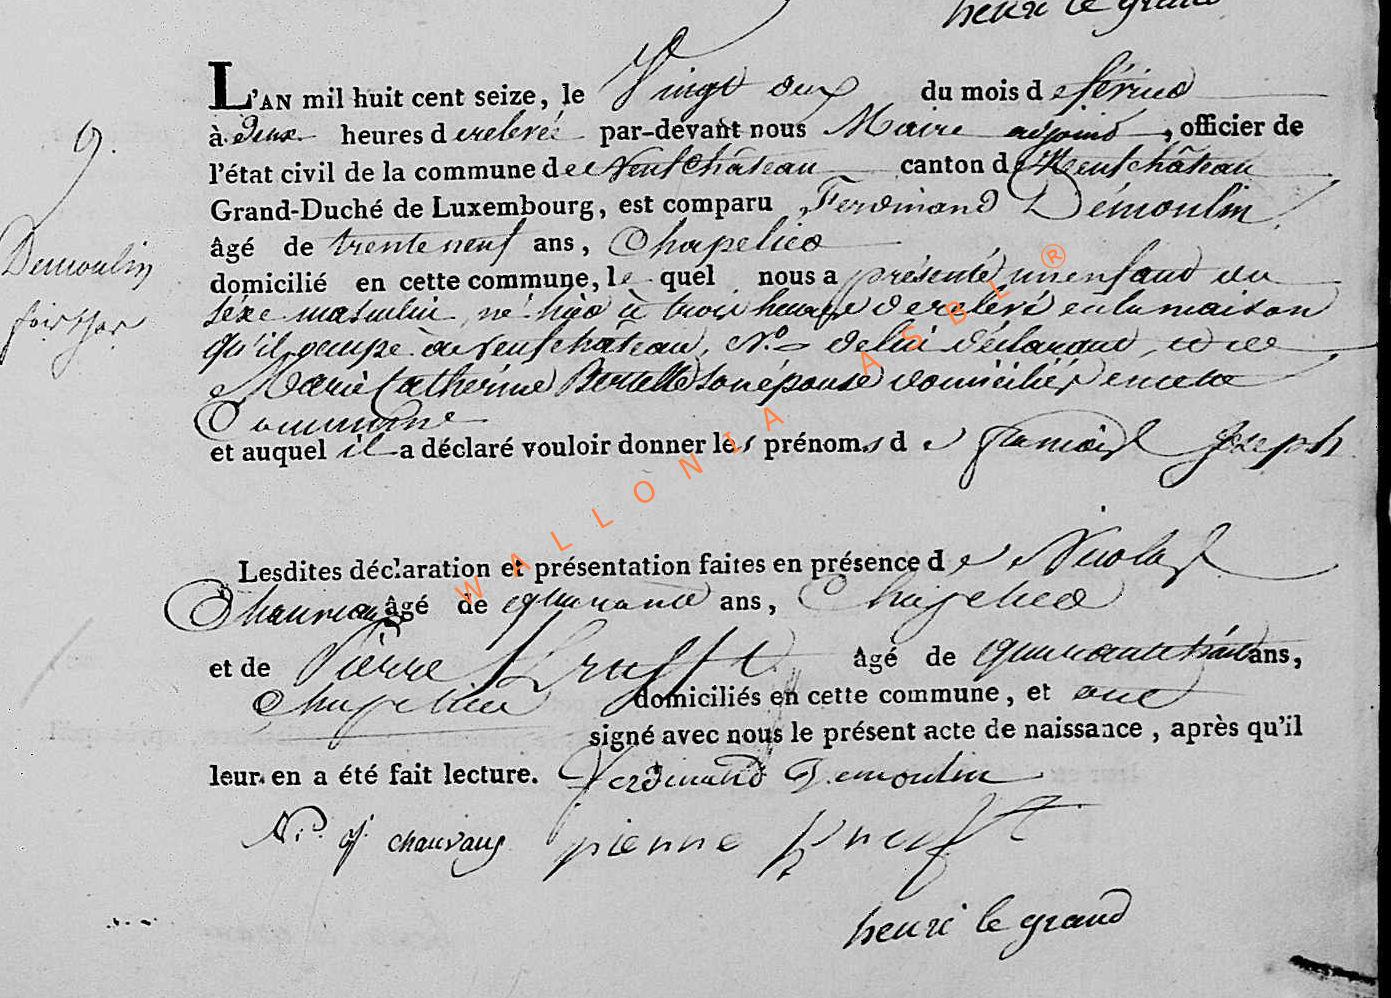 henri le grand
L'AN mil huit cent seize, le Vingt deux du mois de février
9.
à deux heures de relevée par-devant nous Maire adjoint, officier de
l'état civil de la commune de Neufchâteau canton de Neufchâteau
Grand-Duché de Luxembourg, est comparu Ferdinand Démoulin
Demoulin
âgé de trente neuf ans, Chapelier
domicilié en cette commune, le quel nous a présenté un enfant du
séxe masculin, né hier à trois heures de relevé en la maison
qu'il occupe à Neufchâteau, N.o de lui déclarant, et de
Marie Catherine son épouse domiciliés en cette
Commune
et auquel il a déclaré vouloir donner les prénoms de François Joseph
Lesdites déclaration et présentation faites en présence de Nicolas
Chauvaux âgé de quarante ans, Chapelier
et de Pierre âgé de quarante huit ans,
Chapelier domiciliés en cette commune, et ont
signé avec nous le présent acte de naissance, après qu'il
leur en a été fait lecture. Ferdinand Demoulin
chauvaux pierre
henri le grand
WALLONIA ASBL ®